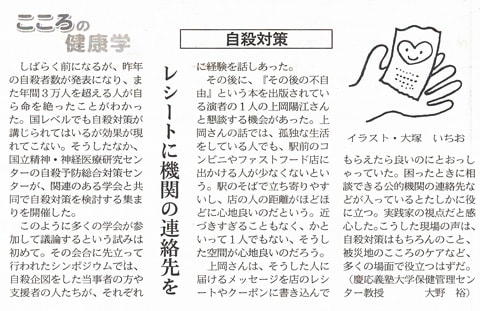 こころの
健康学
自殺対策
レシートに機関の連絡先を
しばらく前になるが、昨年
の自殺者数が発表になり、ま
た年間３万人を超える人が自
ら命を絶ったことがわかっ
た。国レベルでも自殺対策が
講じられてはいるが効果が現
れてこない。そうしたなか、
国立精神・神経医療研究セン
ターの自殺予防総合対策セン
ターが、関連のある学会と共
同で自殺対策を検討する集ま
りを開催した。
このように多くの学会が参
加して議論するという試みは
初めて。その会合に先立って
行われたシンポジウムでは、
自殺企図をした当事者の方や
支援者の人たちが、それぞれ
に経験を話しあった。
その後に、『その後の不自
由』という本を出版されてい
る演者の１人の上岡陽江さん
と懇談する機会があった。上
岡さんの話では、孤独な生活
をしている人でも、駅前のコ
ンビニやファストフード店に
出かける人が少なくないとい
う。駅のそばで立ち寄りやす
いし、店の人の距離がほどほ
どに心地良いのだという。近
づきすぎることもなく、かと
いって１人でもない、そうし
た空間が心地良いのだろう。
上岡さんは、そうした人に
届けるメッセージを店のレシ
ートやクーポンに書き込んで
イラスト・大塚　いちお
もらえたら良いのにとおっし
ゃっていた。困ったときに相
談できる公的機関の連絡先な
どが入っているとたしかに役
に立つ。実践家の視点だと感
心した。こうした現場の声は、
自殺対策はもちろんのこと、
被災地のこころのケアなど、
多くの場面で役立つはずだ。
（慶応義塾大学保健管理セン
ター教授　　　大野　裕）